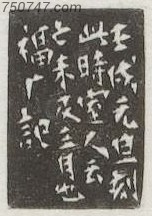 750747.com
壬戌元旦刻
此時室人云
亡未及三月也
福厂記